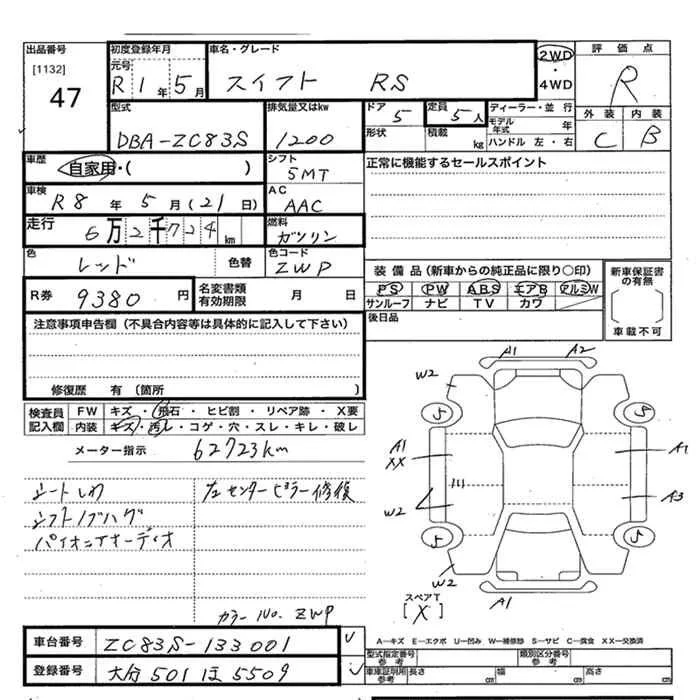 出品番号 初度登録年月 車名・グレード 2WD 評価点
[1132] 元号
47 R 1年 5月 スイフト RS ・ 4WD R
型式 排気量又はkw ドア 定員 ディーラー・並行 外装 内装
DBA-ZC83S 1200 5 5人 モデル年式 年
形状 積載 kg ハンドル 左・右 C B
車歴 シフト 正常に機能するセールスポイント
自家用・( ) 5MT
車検 AC
R8年 5月(21日) AAC
走行 燃料
6万2千724km ガソリン
色 色コード
レッド 色替 ZWP 装備品(新車からの純正品に限り○印) 新車保証書の有無
R券 名変書類有効期限 PS PW ABS エアB アルミW
9380円 月 日 サンルーフ ナビ TV カワ
注意事項申告欄(不具合内容等は具体的に記入して下さい) 後日品 車載不可
修復歴 有(箇所 )
検査員記入欄 FW キズ・飛石・ヒビ割・リペア跡・X要
内装 キズ・汚レ・コゲ・穴・スレ・キレ・破レ
メーター指示 62723km
シートしわ 左センターピラー修復
シフトノブハゲ
パイオニアオーディオ
カラーNo. ZWP
A1 A2
W2
5 5
A1 A1
XX
W2 A3
5 5
W2
A1
スペアT
[X]
車台番号 ZC83S-133001
A―キズ E―エクボ U―凹み W―補修跡 S―サビ C―腐食 XX―交換済
登録番号 大分 501 ほ 5509
型式指定番号 参考 類別区分番号 参考
車庫証明用 参考 長さ cm 幅 cm 高さ cm